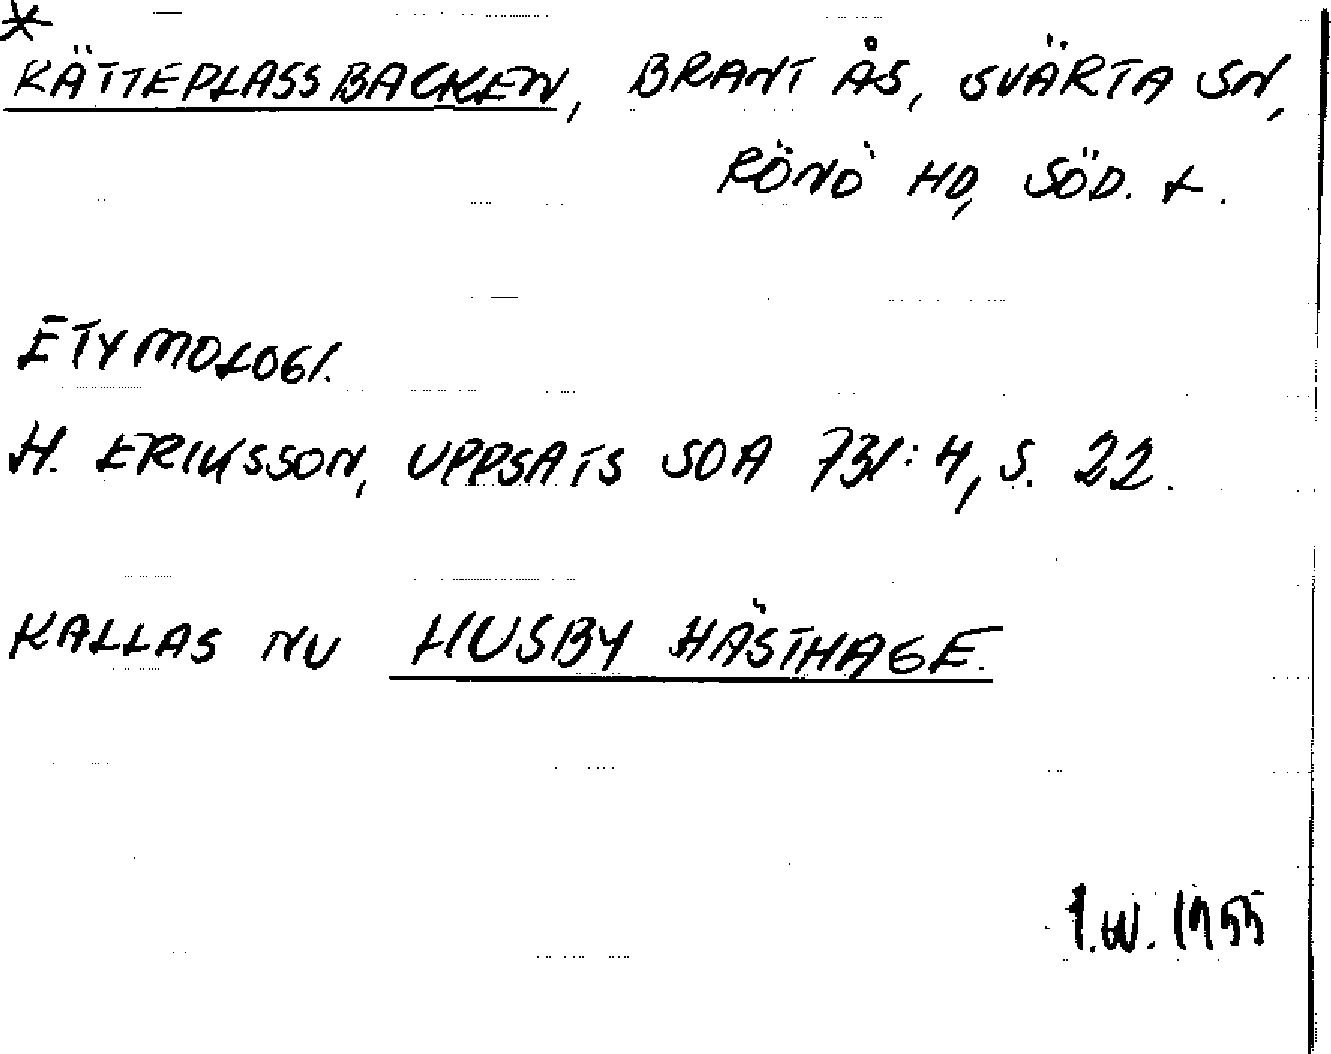 *
RÄTTEPLASSBACKEN, BRANT ÅS, SVÄRTA SN,
RÖNÖ HD, SÖD. L.
ETYMOLOGI.
H. ERIKSSON, UPPSATS SOA 731:4, S. 22.
KALLAS NU HUSBY HÄSTHAGE.
1955